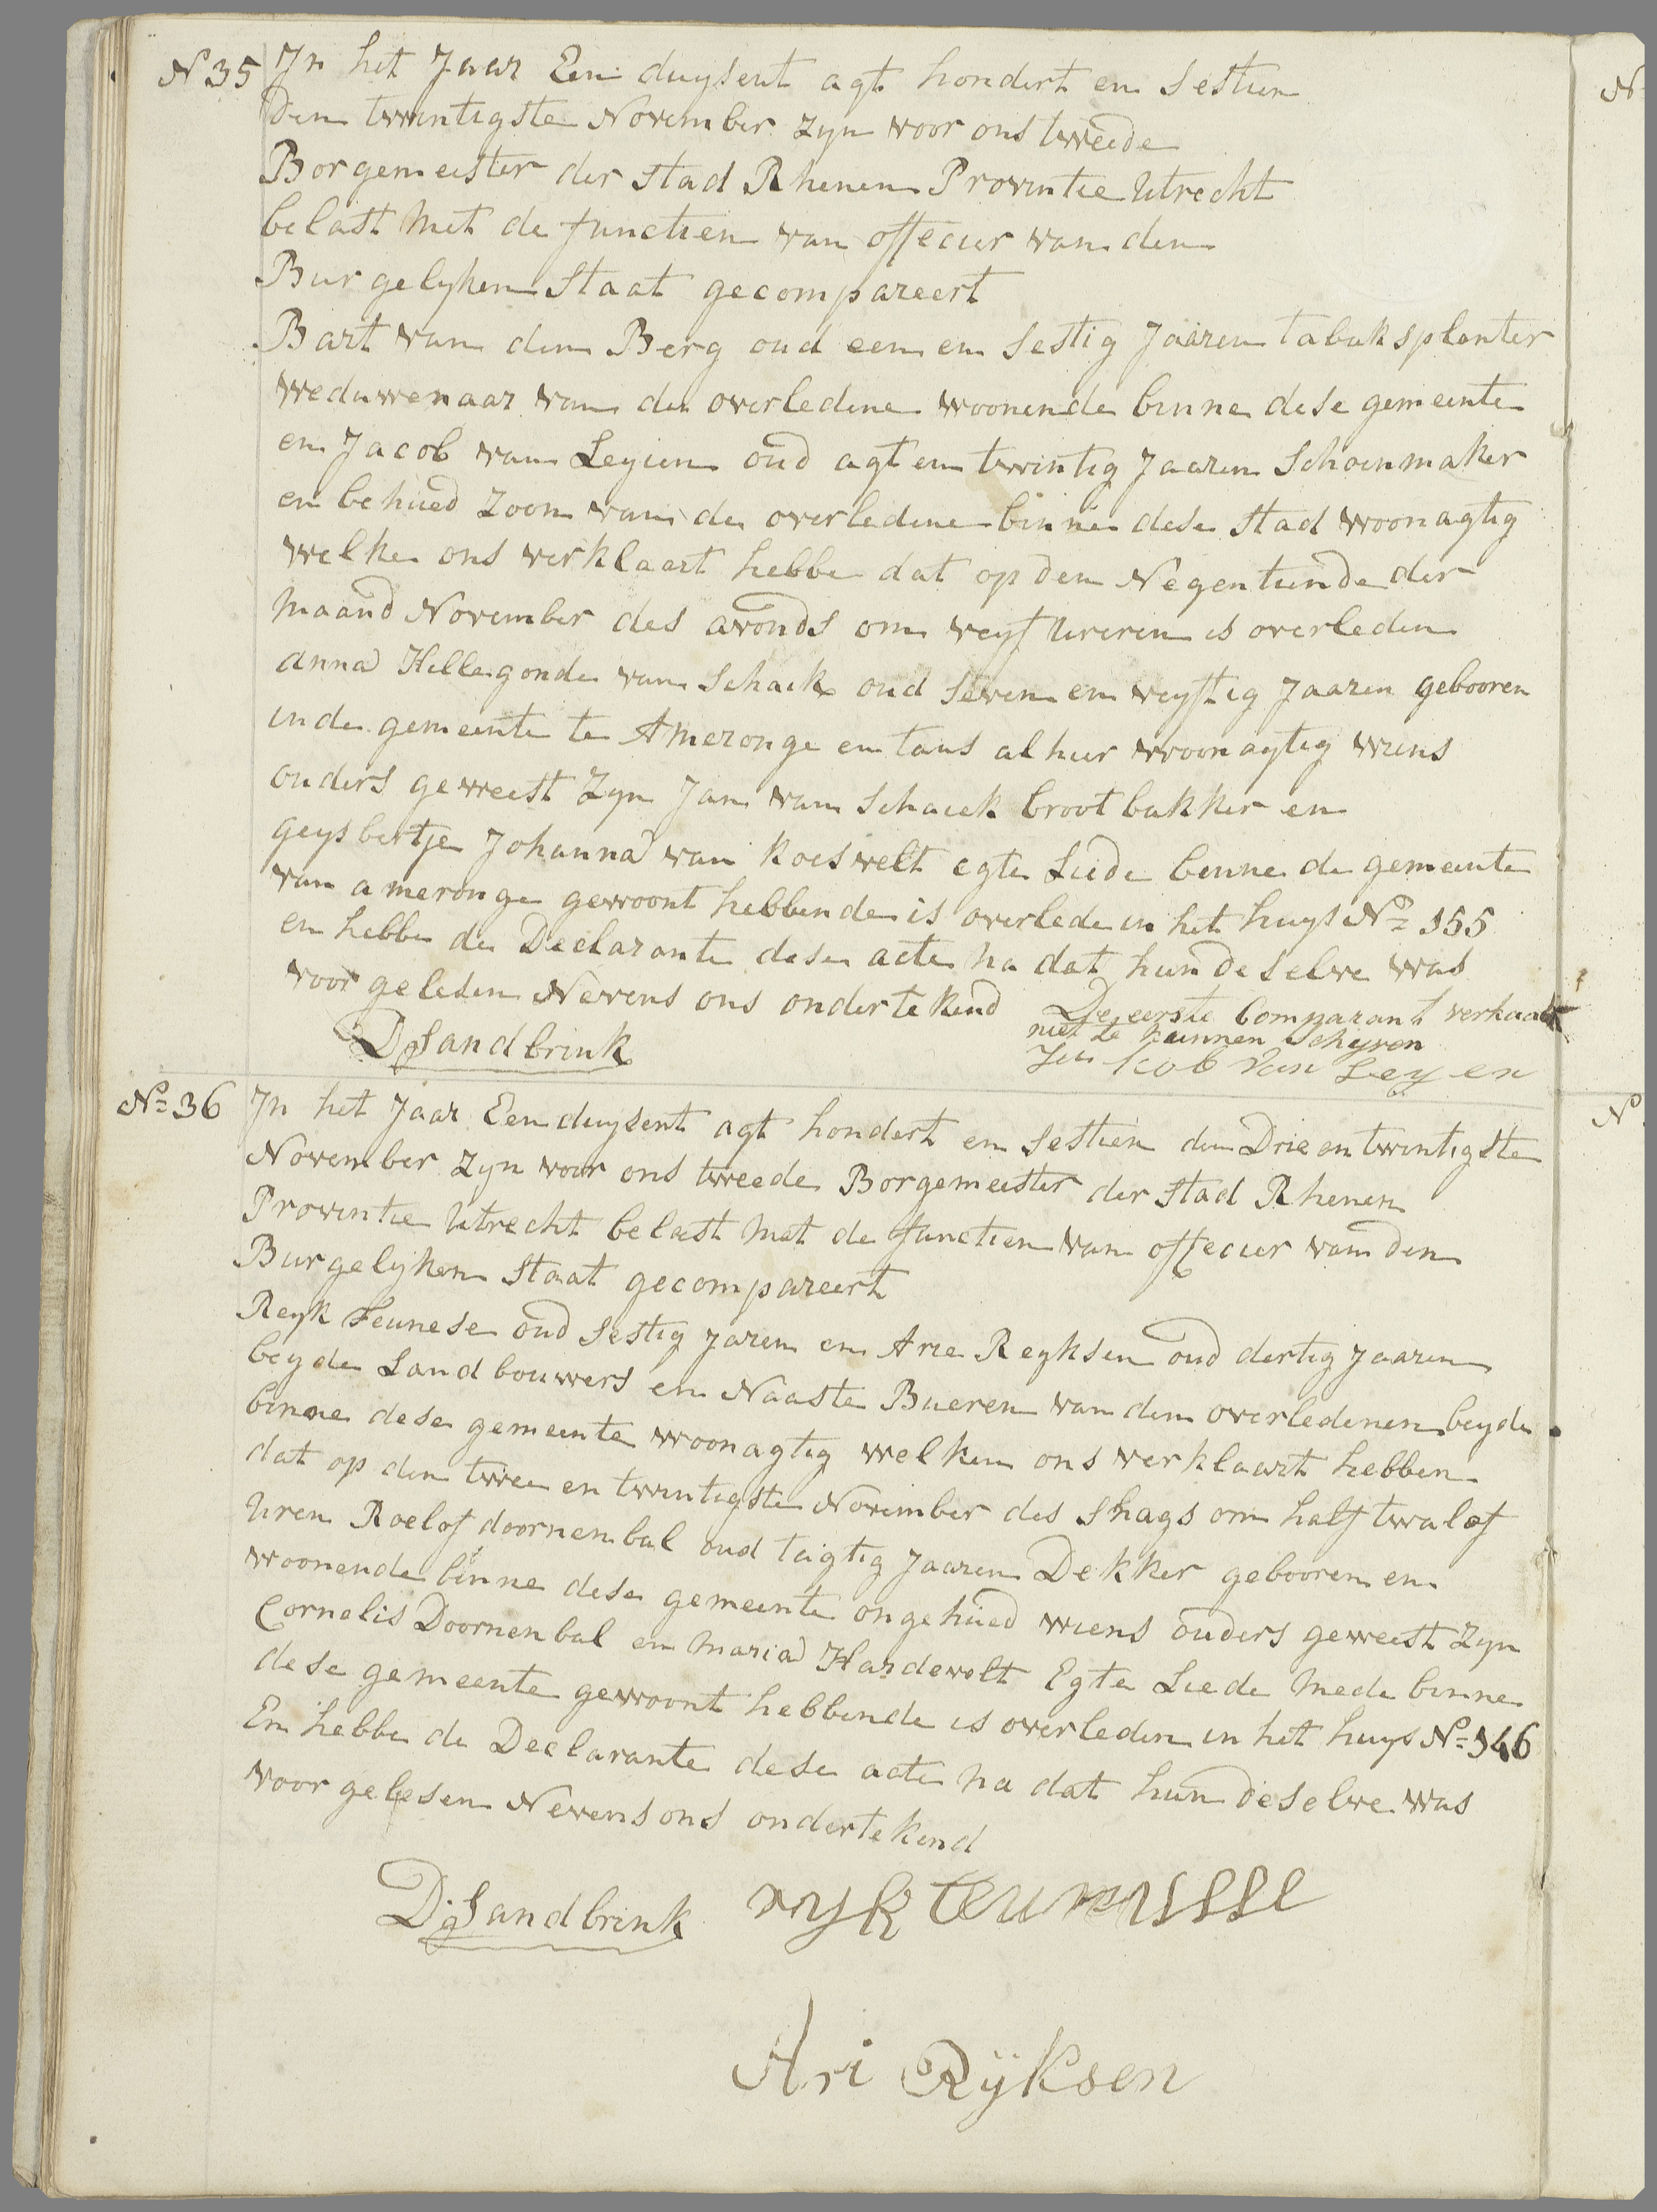 N 35 In het Jaar Een duysent agt hondert en sestien
den twintigste November zyn voor ons tweede
Borgemeester der stad Rhenen Provintie Utrecht
belast met de functien van offecier van den
Burgelyken Staat gecompareert
Bart van den Berg oud een en sestig Jaaren tabuksplanter
weduwenaar van de overledene woonende binne dese gemeente
en Jacob van Leyien oud agt en twintig Jaaren Schoenmaker
en behued zoon van de overledene binne dese stad woonagtig
welke ons verklaart hebbe dat op den Negentiende der
maand November des avonds om veyf ureren is overleden
anna Hillegonde van Schaik oud seven en veyftig Jaaren gebooren
in de gemeente te Ameronge en tans alhier woonagtig wiens
ouders geweest Zyn Jan van Schaick broot bakker en
geysbertje Johanna van koeswelt egte Liede binne de gemeente
van ameronge gewoont hebbende is overlede in het huys No 155
en hebbe de Declarante dese acte na dat hun deselve was
voor gelesen Nevens ons ondertekend De eerste Comparant verkaart
niet te kunnen Schyven
D Sandbrink
Jaa kob van Leyen
No 36 In het Jaar Een duysent agt hondert en sestien den Drie en twintigste
November zyn voor ons tweede Borgemeester der stad Rhenen
Provintie Utrecht belast met de functien van offecier van den
Burgelyken Staat gecompareert
Reyk Teunese oud sestig jaren en Arie Reyksen oud dertig Jaaren
beyde Landbouwers en Naaste Bueren van den overledenen beyde
binne dese gemeente woonagtig welken ons verklaart hebben
dat op den twee en twintigste November des shags om half twalof
Uren Roelof doornenbal oud tagtig Jaaren Dekker gebooren en
woonende binne dese gemeente ongehued wiens ouders geweest zyn
Cornelis Doornenbal en maria Hardevelt Egte Liede mede binne
dese gemeente gewoont hebbende is overleden in het huys No 146
En hebbe de Declarante dese acte na dat hun deselve was
voor gelesen Nevens ons ondertekend
D Sandbrink ryk teunusse
Ari Ryksen
N
N